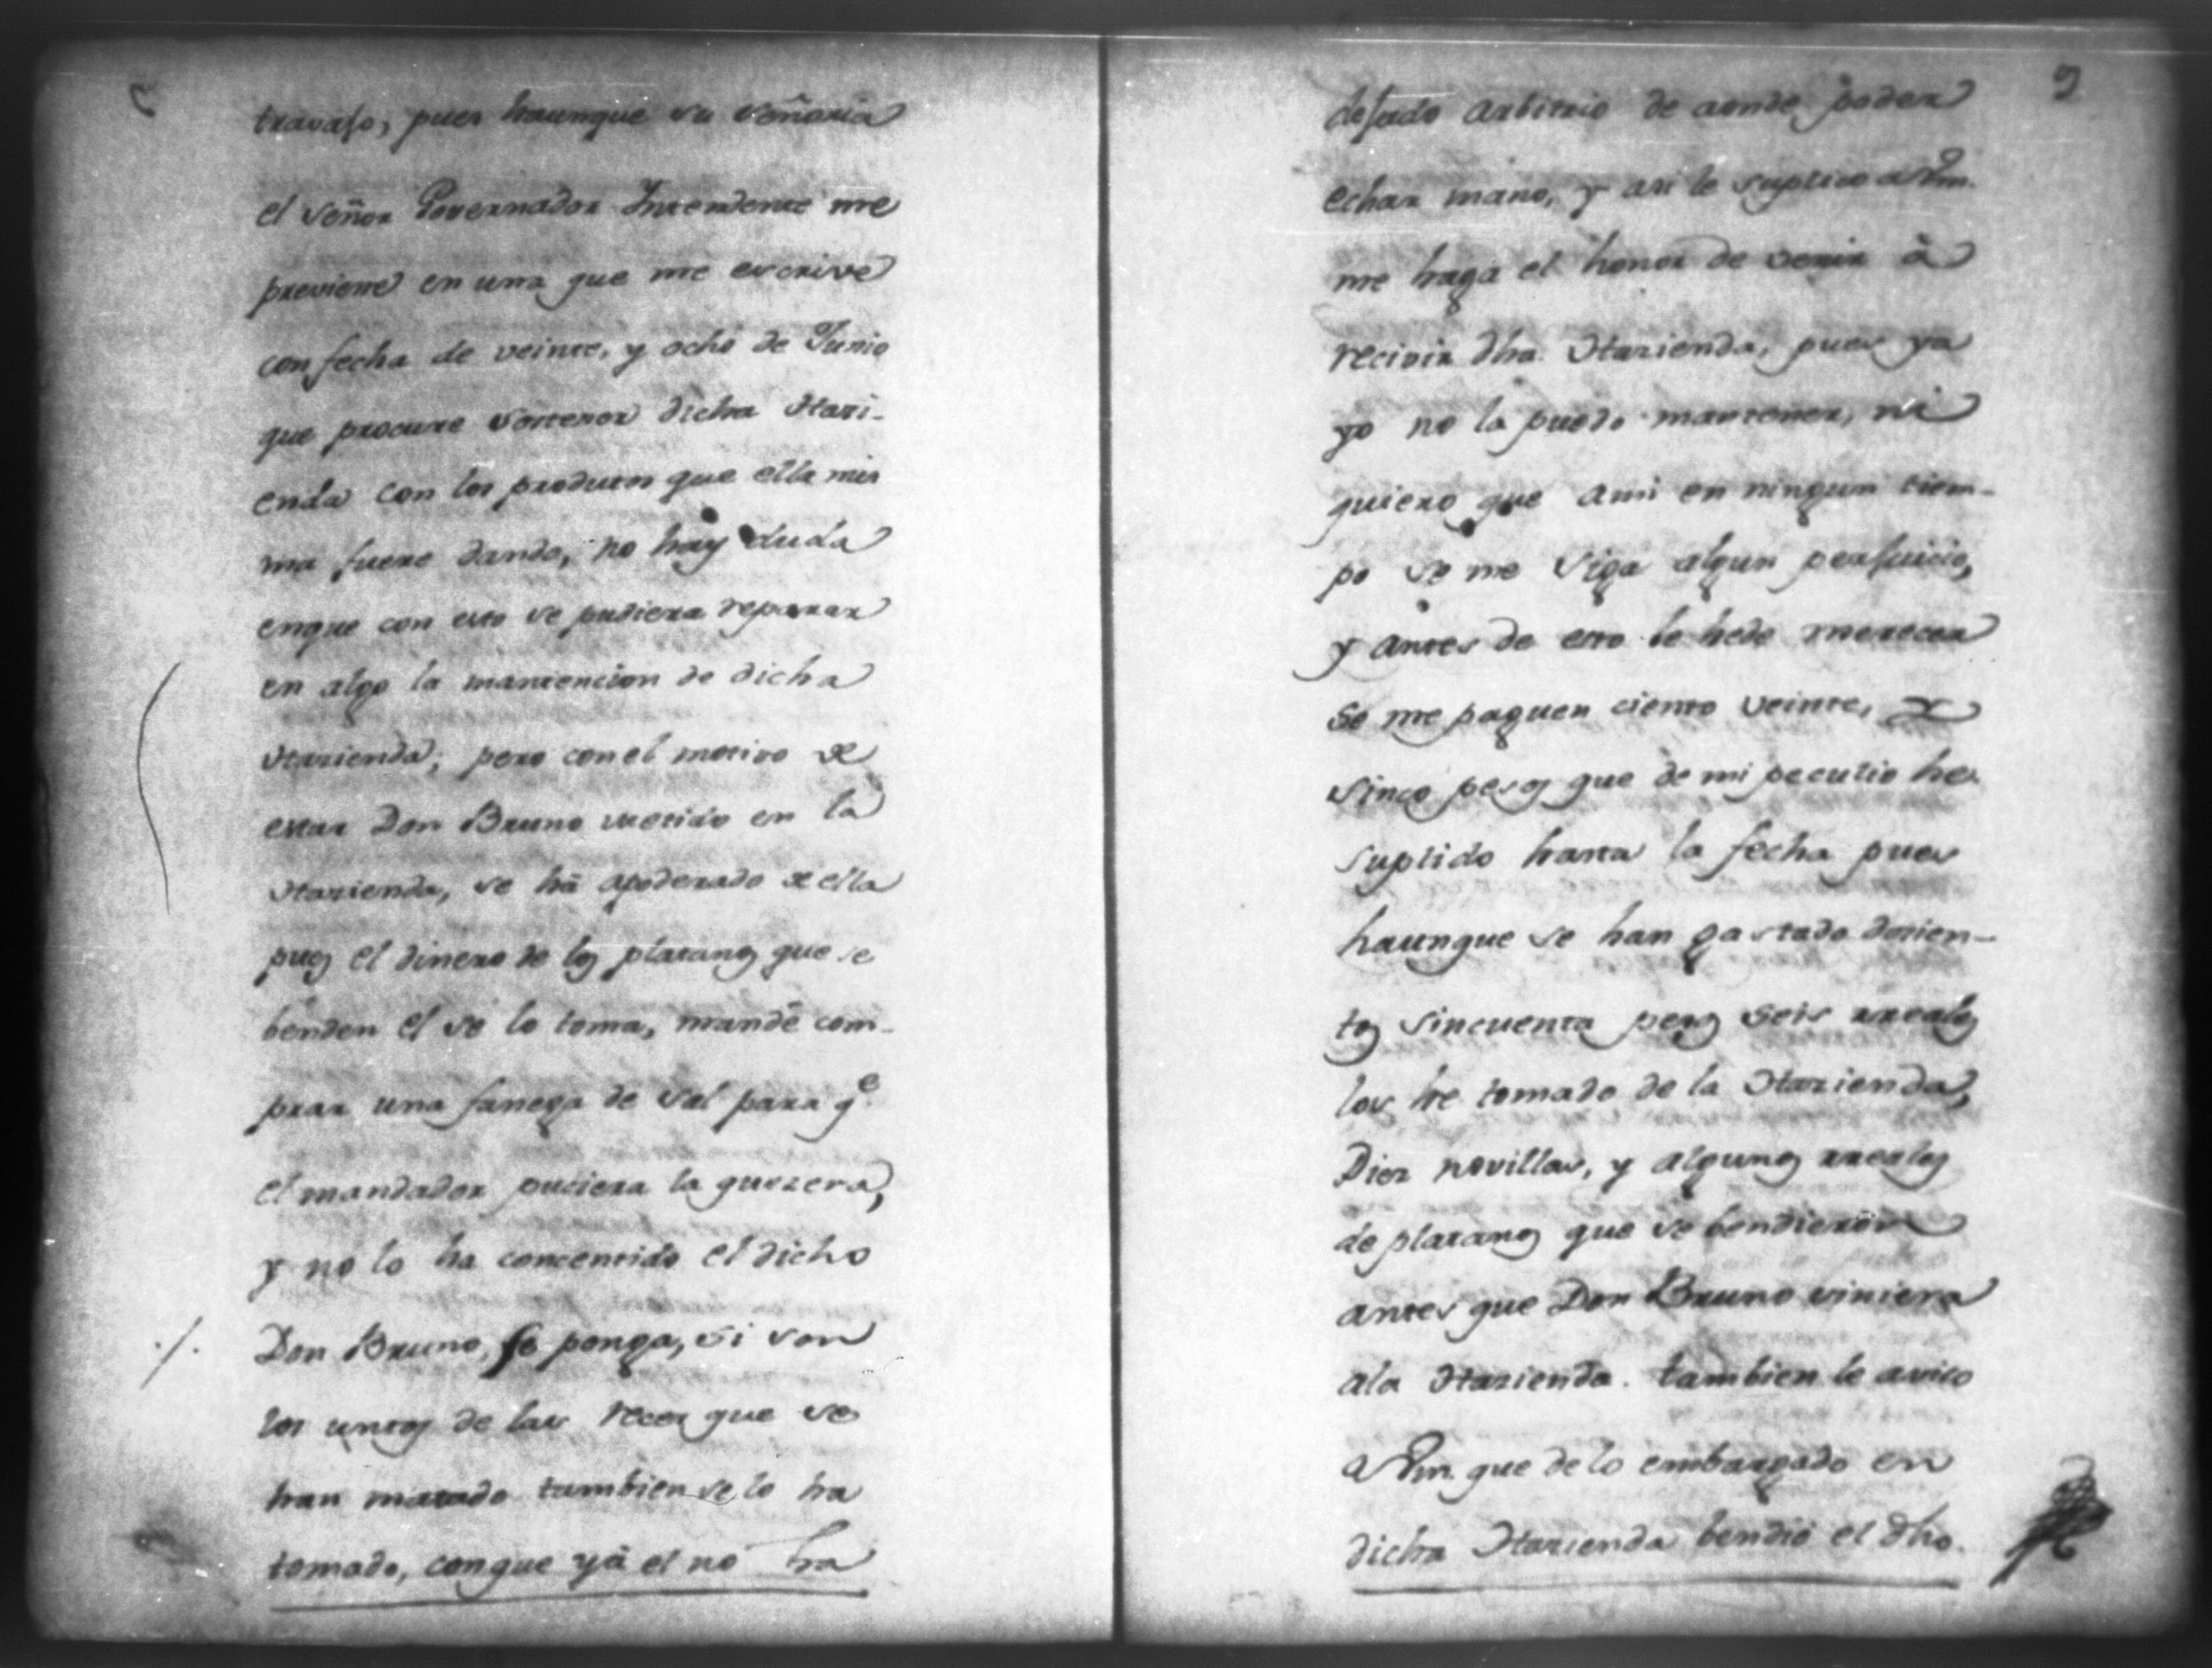 travajo, pues haunque su señoria
el señor Governador Intendente me
previene en una que me escrive
con fecha de veinte, y ocho de Junio
que procure sostener dicha Hazi-
enda con los productos que ella mis
ma fuere dando, no hay duda
enque con esto se pudiera reparar
en algo la mantencion de dicha
Hazienda; pero conel motivo de
estar Don Bruno metido en la
Hazienda, se há apoderado de ella
pues el dinero de los platanos que se
benden el se lo toma, mandé com-
prar una fanega de sal para qe
el mandador pusiera la quezera,
y no lo ha concentido el dicho
Don Bruno, se ponga, si son
los untos de las reces que se
han matado tambien se lo ha
tomado, conque yá el no ha
9
dejado arbitrio de aonde poder
echar mano, y asi le suplico a Vm.
me haga el honor de venir á
recivir dha. Hazienda, pues ya
yo no la puedo mantener, ni
quiero que ami en ningun tiem-
po se me siga algun perjuicio,
y antes de esto le hede merecer
se me paguen ciento veinte, y
sinco pesos que de mi peculio he
suplido hasta la fecha pues
haunque se han gastado docien-
tos sincuenta pesos seis rreales
los he tomado de la Hazienda,
Diez novillas, y algunos rreales
de platanos que se bendieron
antes que Don Bruno viniera
ala Hazienda. tambien le aviso
a Vm. que de lo embargado en
dicha Hazienda bendió el dho.